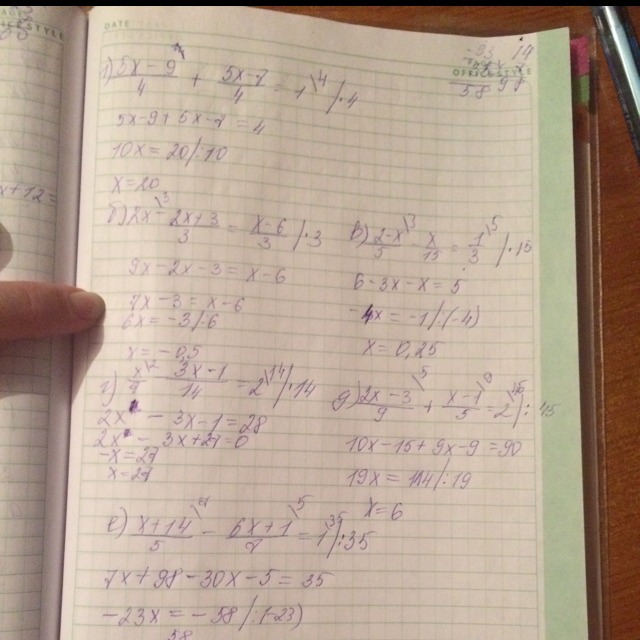 DATE
OFFICE STYLE
x+12=
(5x-9)/4 + (5x-7)/4 = 1 \4 /·4
5x-9+5x-7=4
10x=20/:10
x=20
б) 3x \3 - (2x+3)/3 = (x-6)/3 /·3
9x-2x-3=x-6
7x-3=x-6
6x=-3/6
x=-0,5
в) (2-x)/5 \3 - x/15 = 1/3 \5 /·15
6-3x-x=5
-4x=-1/:(-4)
x=0,25
г) x/7 \2 - (3x-1)/14 = 2 \14 /·14
2x - 3x-1=28
2x - 3x+27=0
-x=27
x=27
д) (2x-3)/9 \5 + (x-1)/5 \9 = 2 \45 /:45
10x-15+9x-9=90
19x=114/:19
x=6
е) (x+14)/5 \7 - (6x+1)/7 \5 = 1 \35 /:35
7x+98-30x-5=35
-23x=-58/:(-23)
58